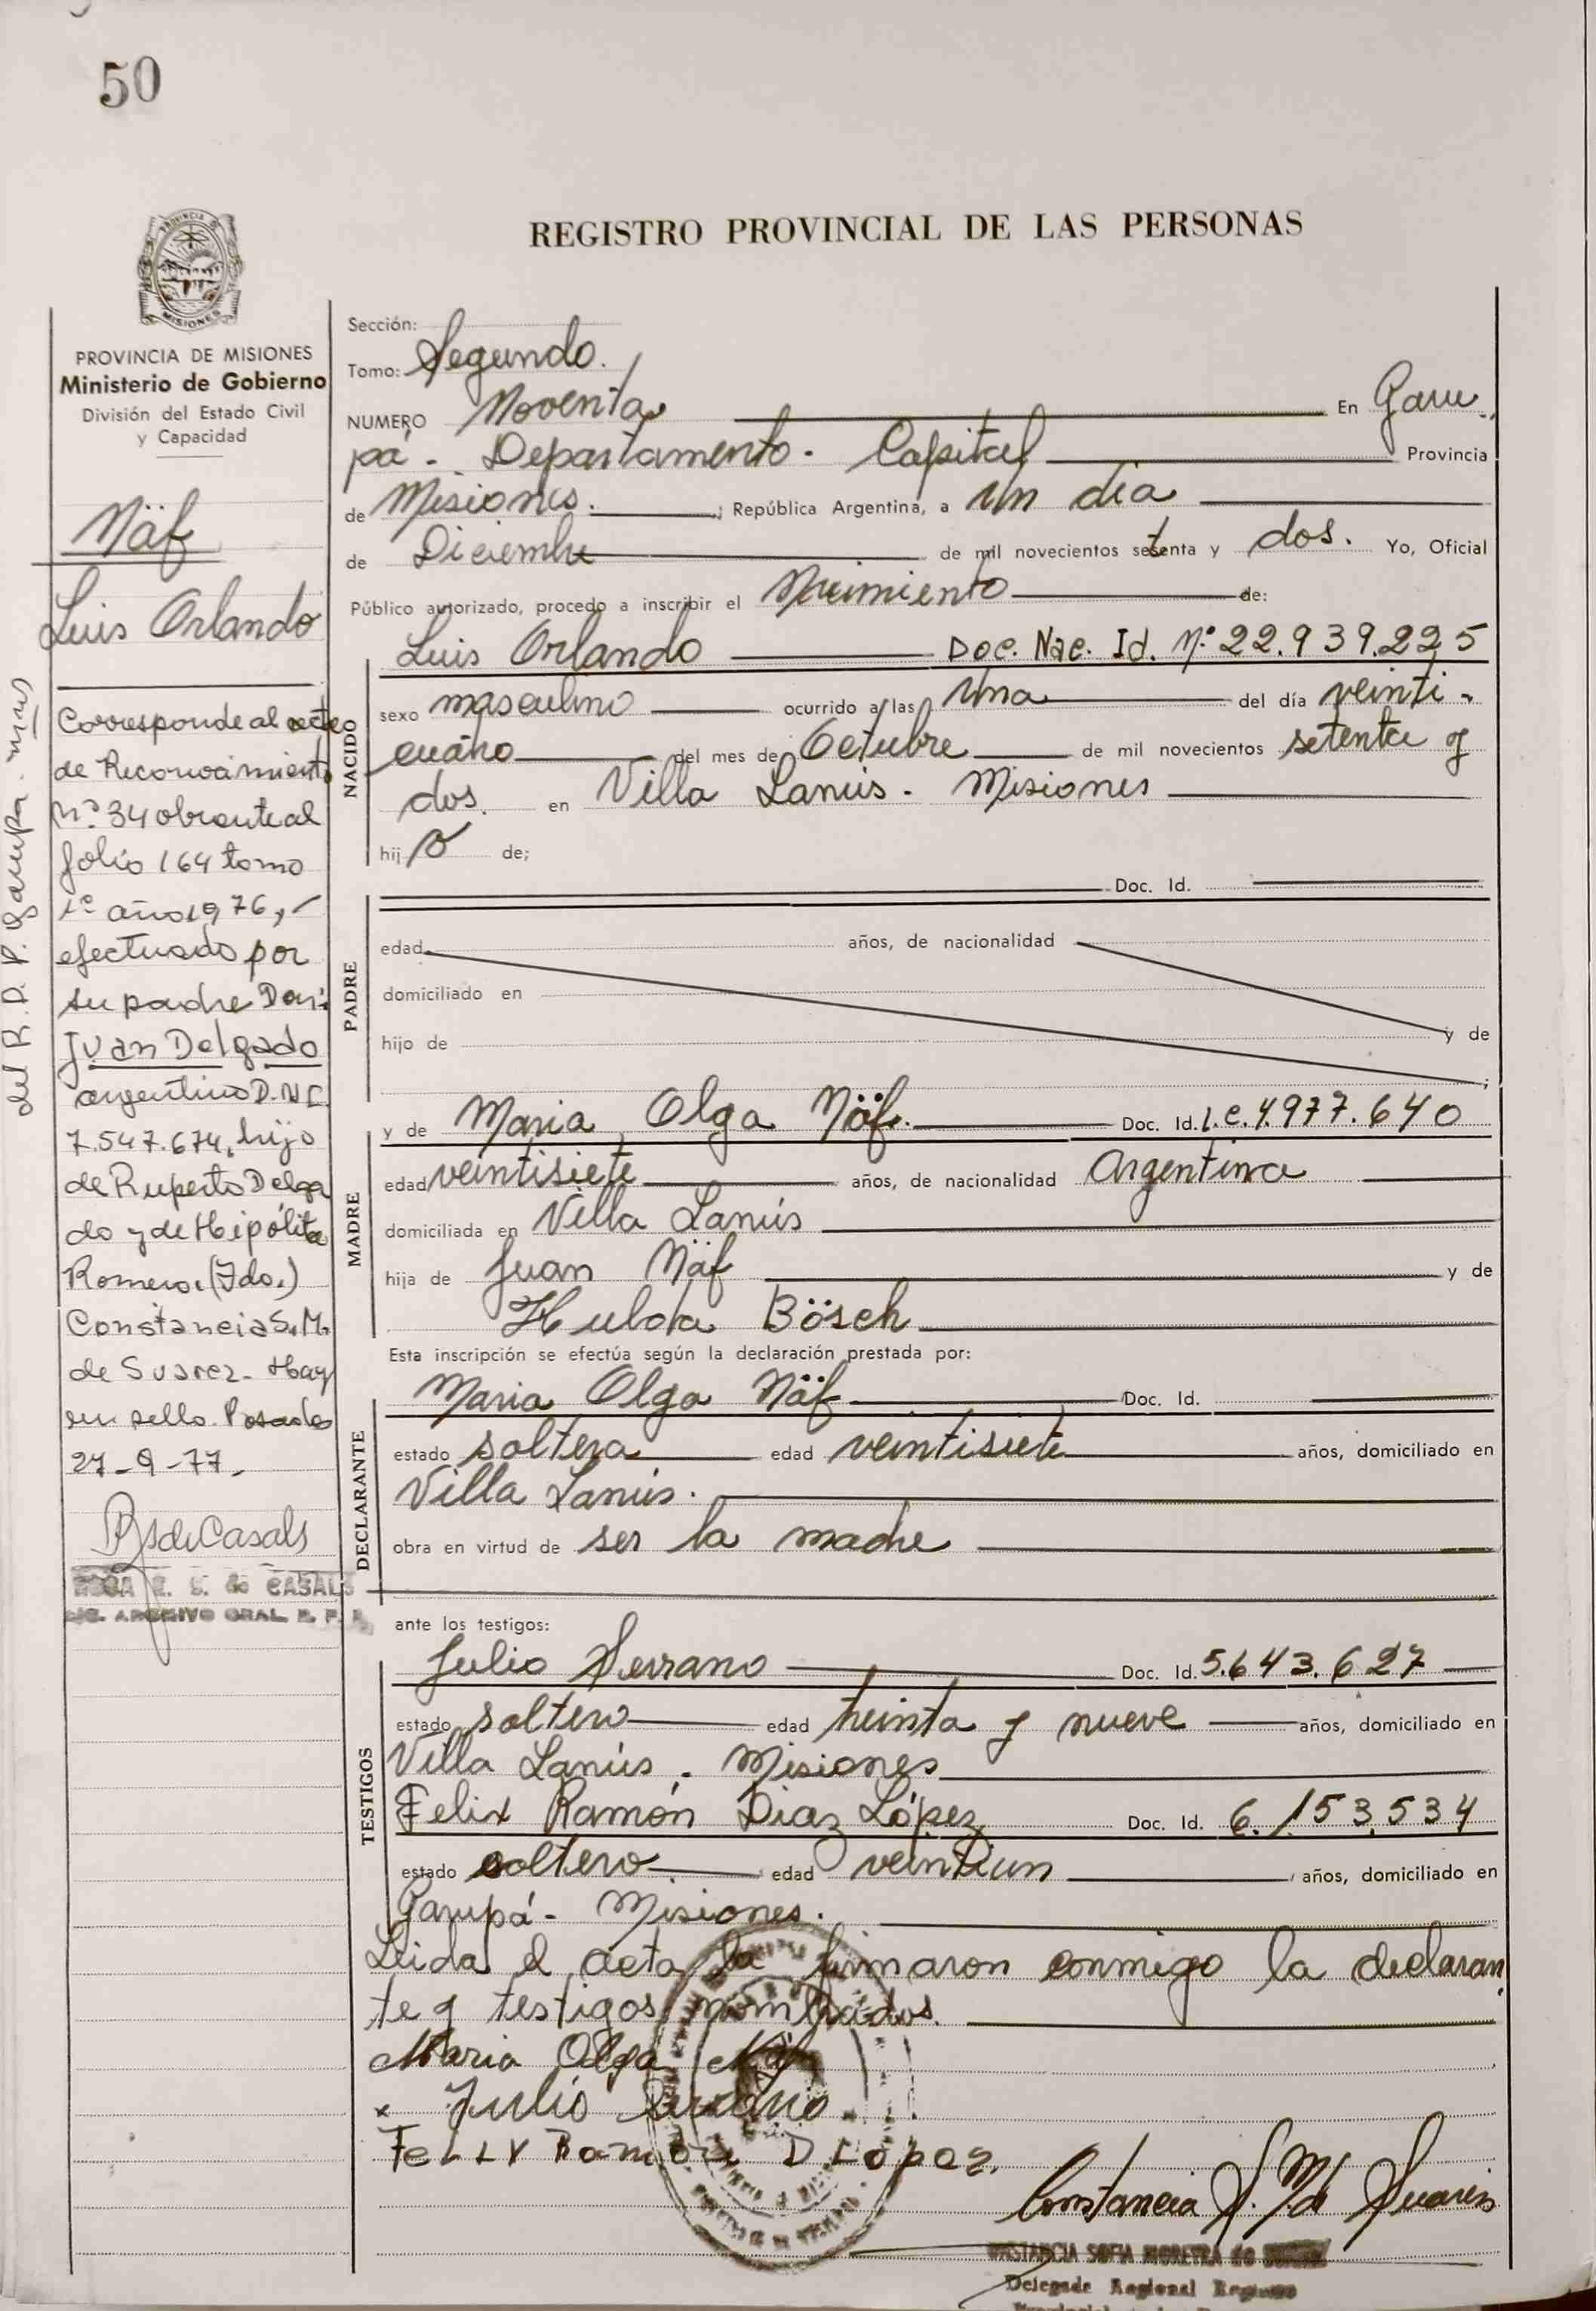 50
REGISTRO PROVINCIAL DE LAS PERSONAS
PROVINCIA DE
MISIONES
PROVINCIA DE MISIONES
Ministerio de Gobierno
División del Estado Civil
y Capacidad
Näf
Luis Orlando
Corresponde al acta
de Reconocimiento
Nº 34 obrante al
folio 164 tomo
1º año 1976,-
efectuado por
su padre Don:
Juan Delgado
argentino D.N.I.
7.547.674, hijo
de Ruperto Delga
do y de Hipólita
Romero. (Fdo.)
Constancia S. M.
de Suarez - Hay
un sello. Posadas
27-9-77.
del R.P.P. Garupa. Mnes
RSdeCasals
ROSA E. S. de CASALS
ARCHIVO GRAL. R. P. P.
Sección:
Tomo: Segundo.
NUMERO Noventa En Garu
pá - Departamento - Capital Provincia
de Misiones. ; República Argentina, a Un día
de Diciembre de mil novecientos setenta y dos. Yo, Oficial
Público autorizado, procedo a inscribir el Nacimiento de:
NACIDO
Luis Orlando Doc. Nac. Id. Nº 22.939.225
sexo masculino ocurrido a las Una del día veinti-
cuatro del mes de Octubre de mil novecientos setenta y
dos. en Villa Lanús - Misiones
hij o de;
PADRE
Doc. Id.
edad años, de nacionalidad
domiciliado en
hijo de y de
;
MADRE
y de Maria Olga Näf. Doc. Id. L.C. 4.977.640
edad veintisiete años, de nacionalidad Argentina
domiciliada en Villa Lanús
hija de Juan Näf y de
Hulda Bösch
Esta inscripción se efectúa según la declaración prestada por:
DECLARANTE
Maria Olga Näf Doc. Id.
estado soltera edad veintisiete años, domiciliado en
Villa Lanús.
obra en virtud de ser la madre
ante los testigos:
TESTIGOS
Julio Serrano Doc. Id. 5.643.627
estado soltero edad treinta y nueve años, domiciliado en
Villa Lanús. Misiones
Felix Ramón Diaz López Doc. Id. 6.153.534
estado soltero edad veintiun años, domiciliado en
Garupá - Misiones.
Leida el acta la firmaron conmigo la declaran
te y testigos nombrados.
Maria Olga Näf
x Julio Serrano
Felix Ramón D López.
Constancia S. M. de Suarez
CONSTANCIA SOFIA MOREYRA de SUAREZ
Delegada Regional Registro